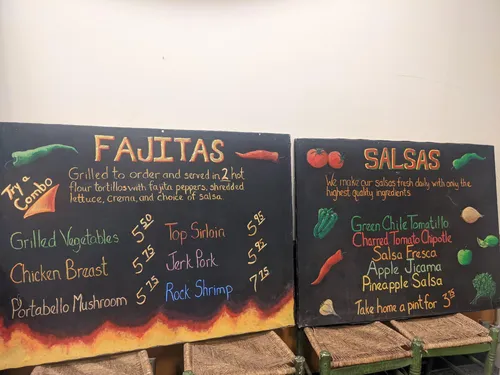 FAJITAS
Grilled to order and served in 2 hot
flour tortillos with fajita peppers, shredded
lettuce, crema, and choice of salsa.
Try a
Combo
Grilled Vegetables 5.50
Chicken Breast 5.75
Portabello Mushroom 5.75
Top Sirloin 5.95
Jerk Pork 5.95
Rock Shrimp 7.25
SALSAS
We make our salsas fresh daily with only the
highest quality ingredients
Green Chile Tomatillo
Charred Tomato Chipotle
Salsa Fresca
Apple Jicama
Pineapple Salsa
Take home a pint for 3.75